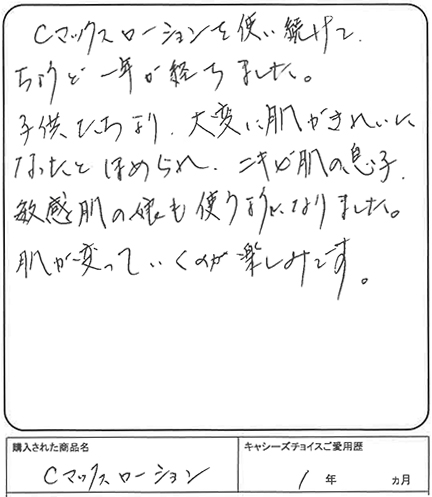 Cマックスローションを使い続けて、
ちょうど一年が経ちました。
子供たちより、大変に肌がきれいに
なったとほめられ、ニキビ肌の息子、
敏感肌の娘も使うようになりました。
肌が変っていくのが楽しみです。
購入された商品名
キャシーズチョイスご愛用歴
Cマックスローション
1年 ヵ月